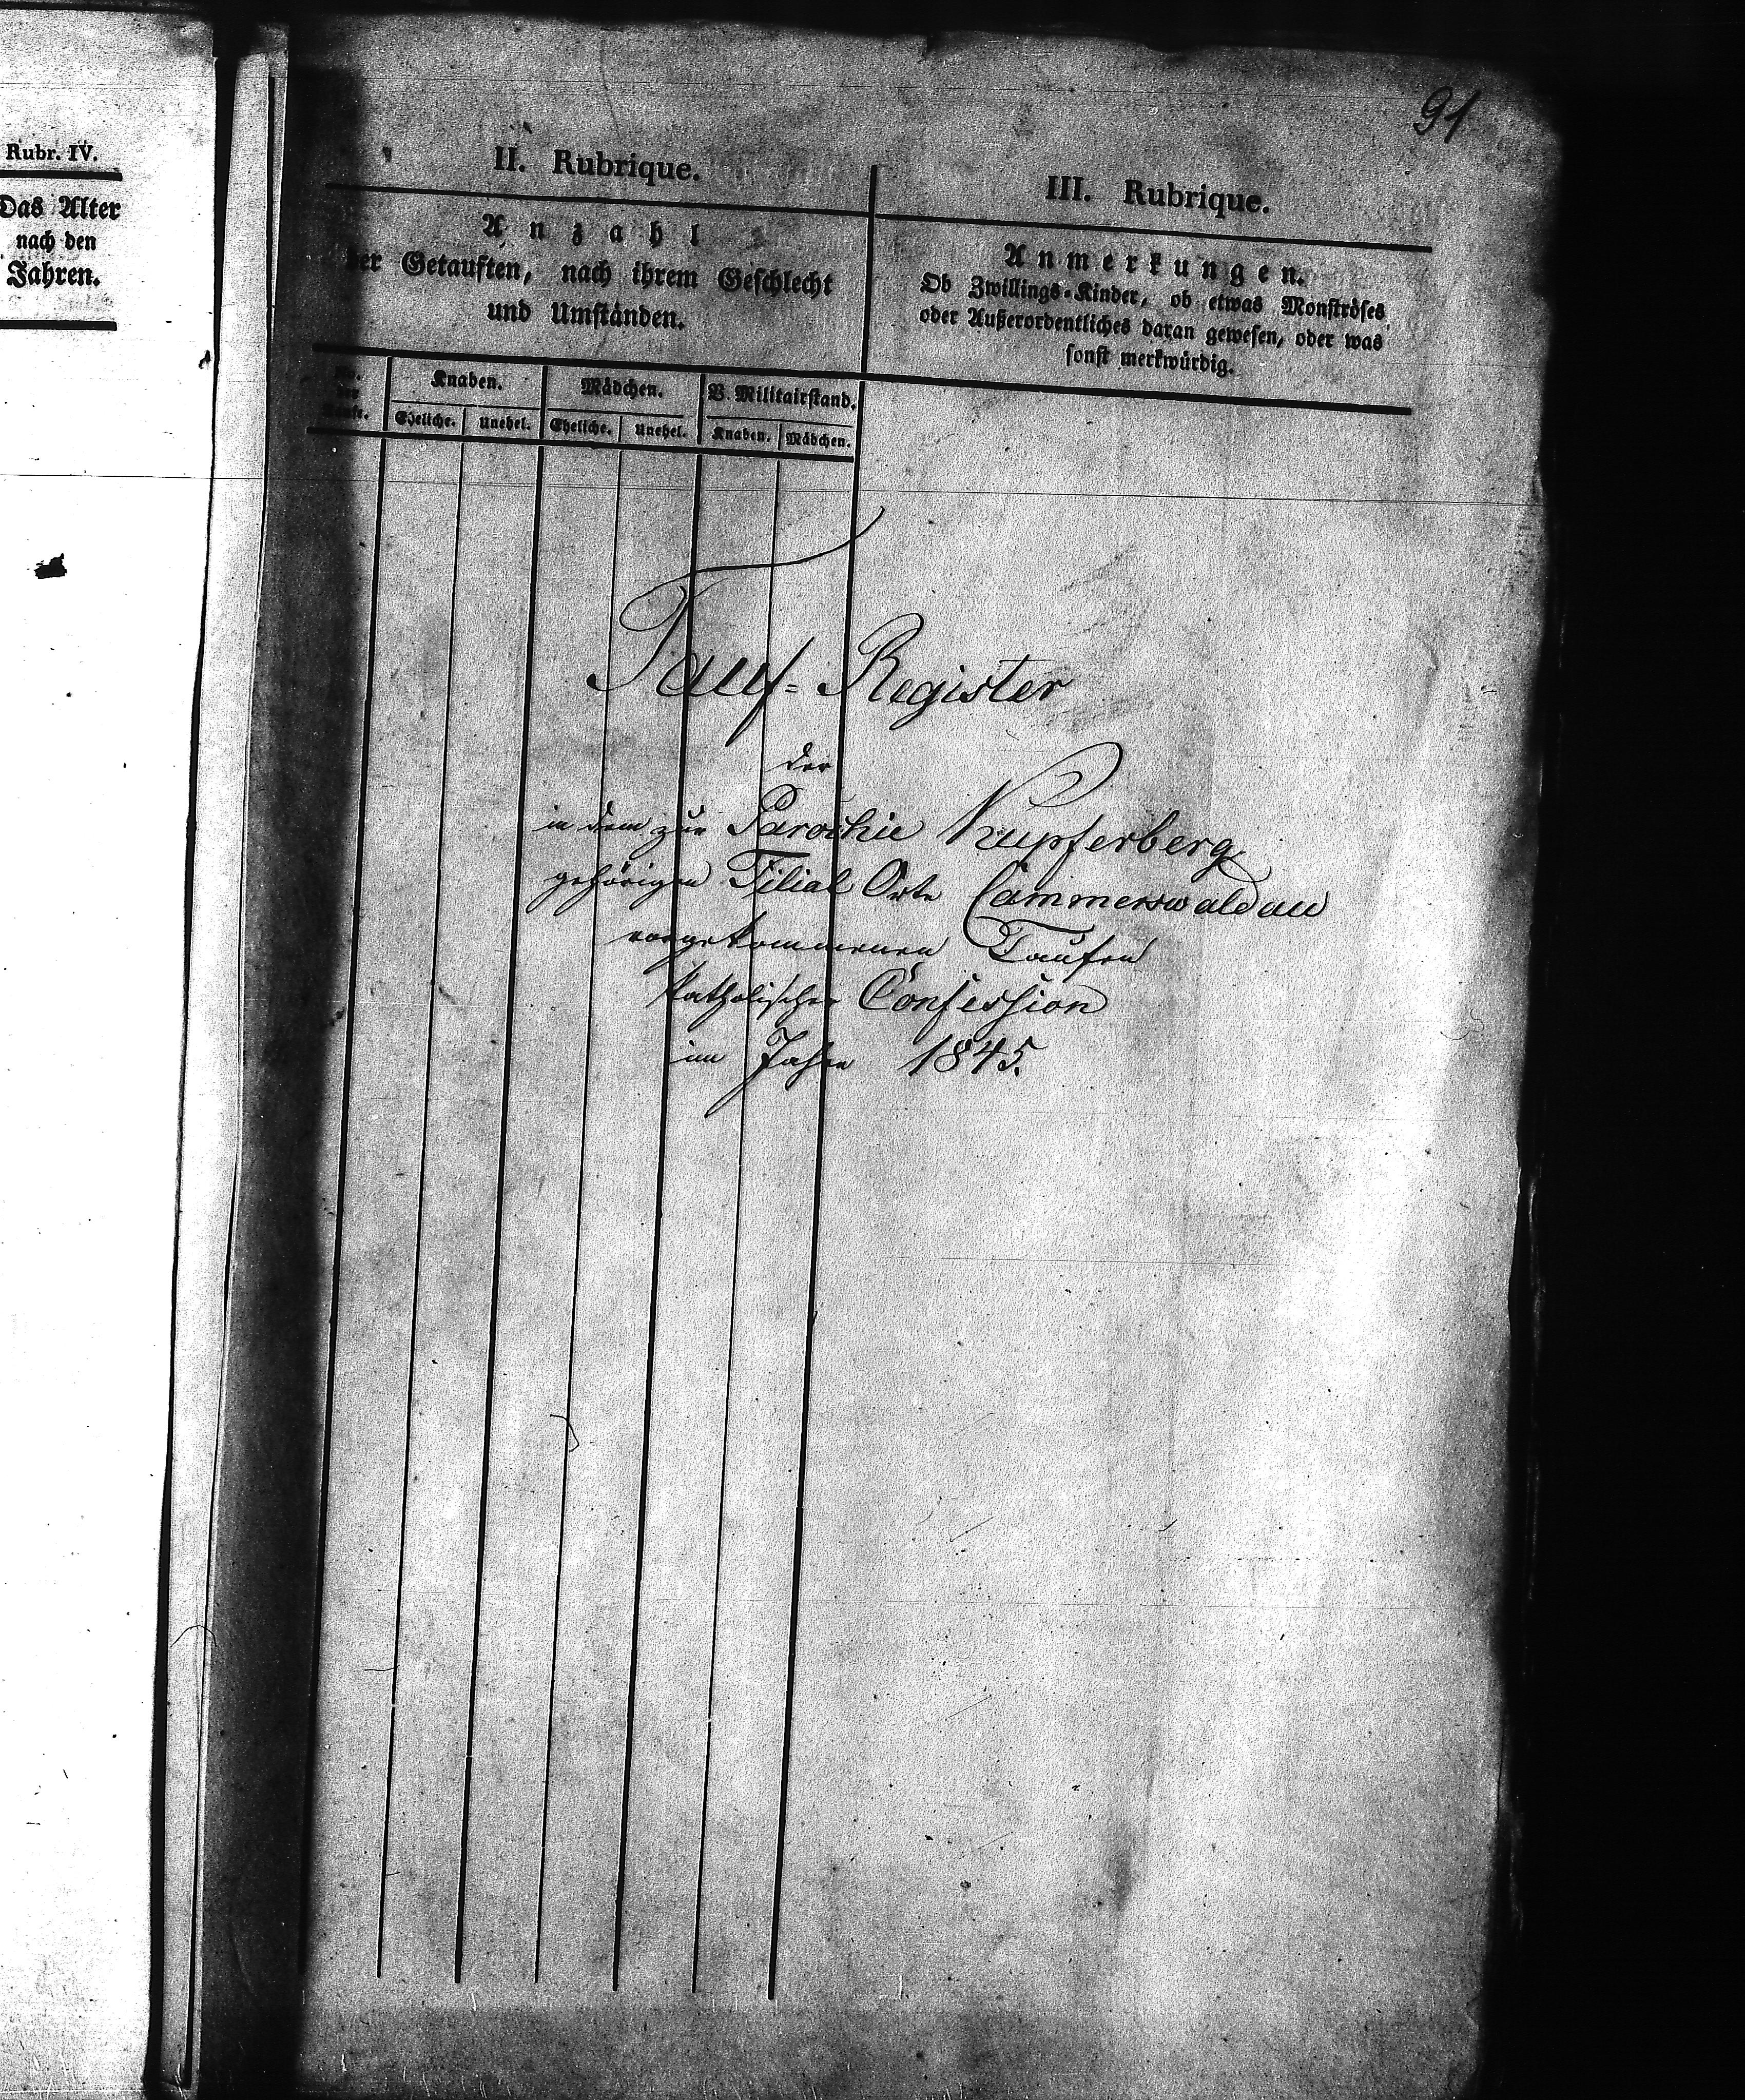 Rubr. IV.
Das Alter
nach den
Jahren.
91
II. Rubrique.
Anzahl
der Getauften, nach ihrem Geschlecht
und Umständen.
III. Rubrique.
Anmerkungen.
Ob Zwillings-Kinder, ob etwas Monströses
oder Außerordentliches daran gewesen, oder was
sonst merkwürdig.
No.
der
Taufe.
Knaben.
Mädchen.
V. Militairstand.
Eheliche. Unehel. Eheliche. Unehel. Knaben. Mädchen.
Tauf-Register
der
in dem zur Parochie Kupferberg
gehörigen Filial Orte Cammerswaldau
vorgekommenen Taufen
katholischer Confession
im Jahre 1845.